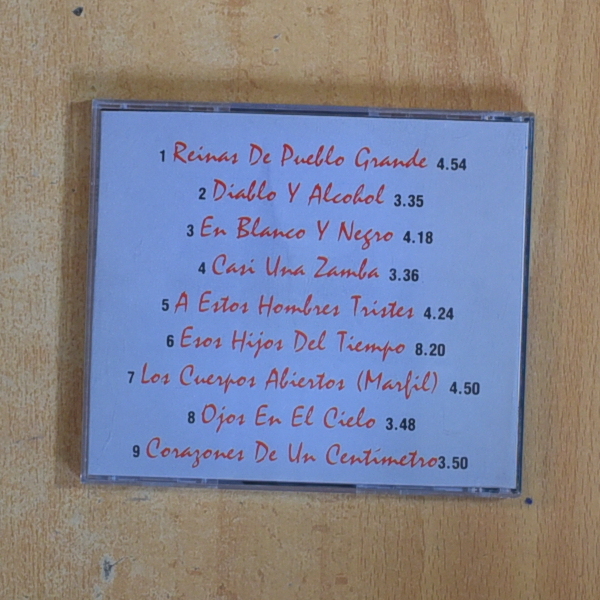 1 Reinas De Pueblo Grande 4.54
2 Diablo Y Alcohol 3.35
3 En Blanco Y Negro 4.18
4 Casi Una Zamba 3.36
5 A Estos Hombres Tristes 4.24
6 Esos Hijos Del Tiempo 8.20
7 Los Cuerpos Abiertos (Marfil) 4.50
8 Ojos En El Cielo 3.48
9 Corazones De Un Centímetro 3.50